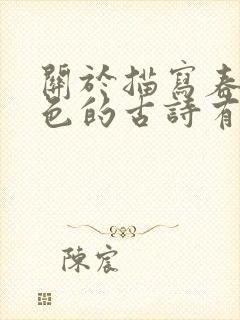 關於描寫春
色的古詩有
陳宸